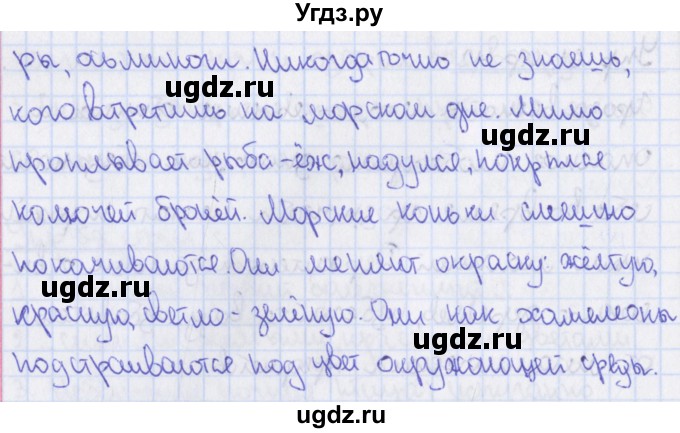 Угдз.ру
ры, осьминоги. Никогда точно не знаешь,
кого встретишь на морском дне. Мимо
проплывает рыба-ёж, надулся, покрылся
колючей бронёй. Морские коньки смешно
покачиваются. Они меняют окраску: жёлтую,
красную, светло-зелёную. Они как хамелеоны
подстраиваются под цвет окружающей среды.
ugdz.ru
ugdz.ru
ugdz.ru
ugdz.ru
ugdz.ru
ugdz.ru
ugdz.ru
ugdz.ru